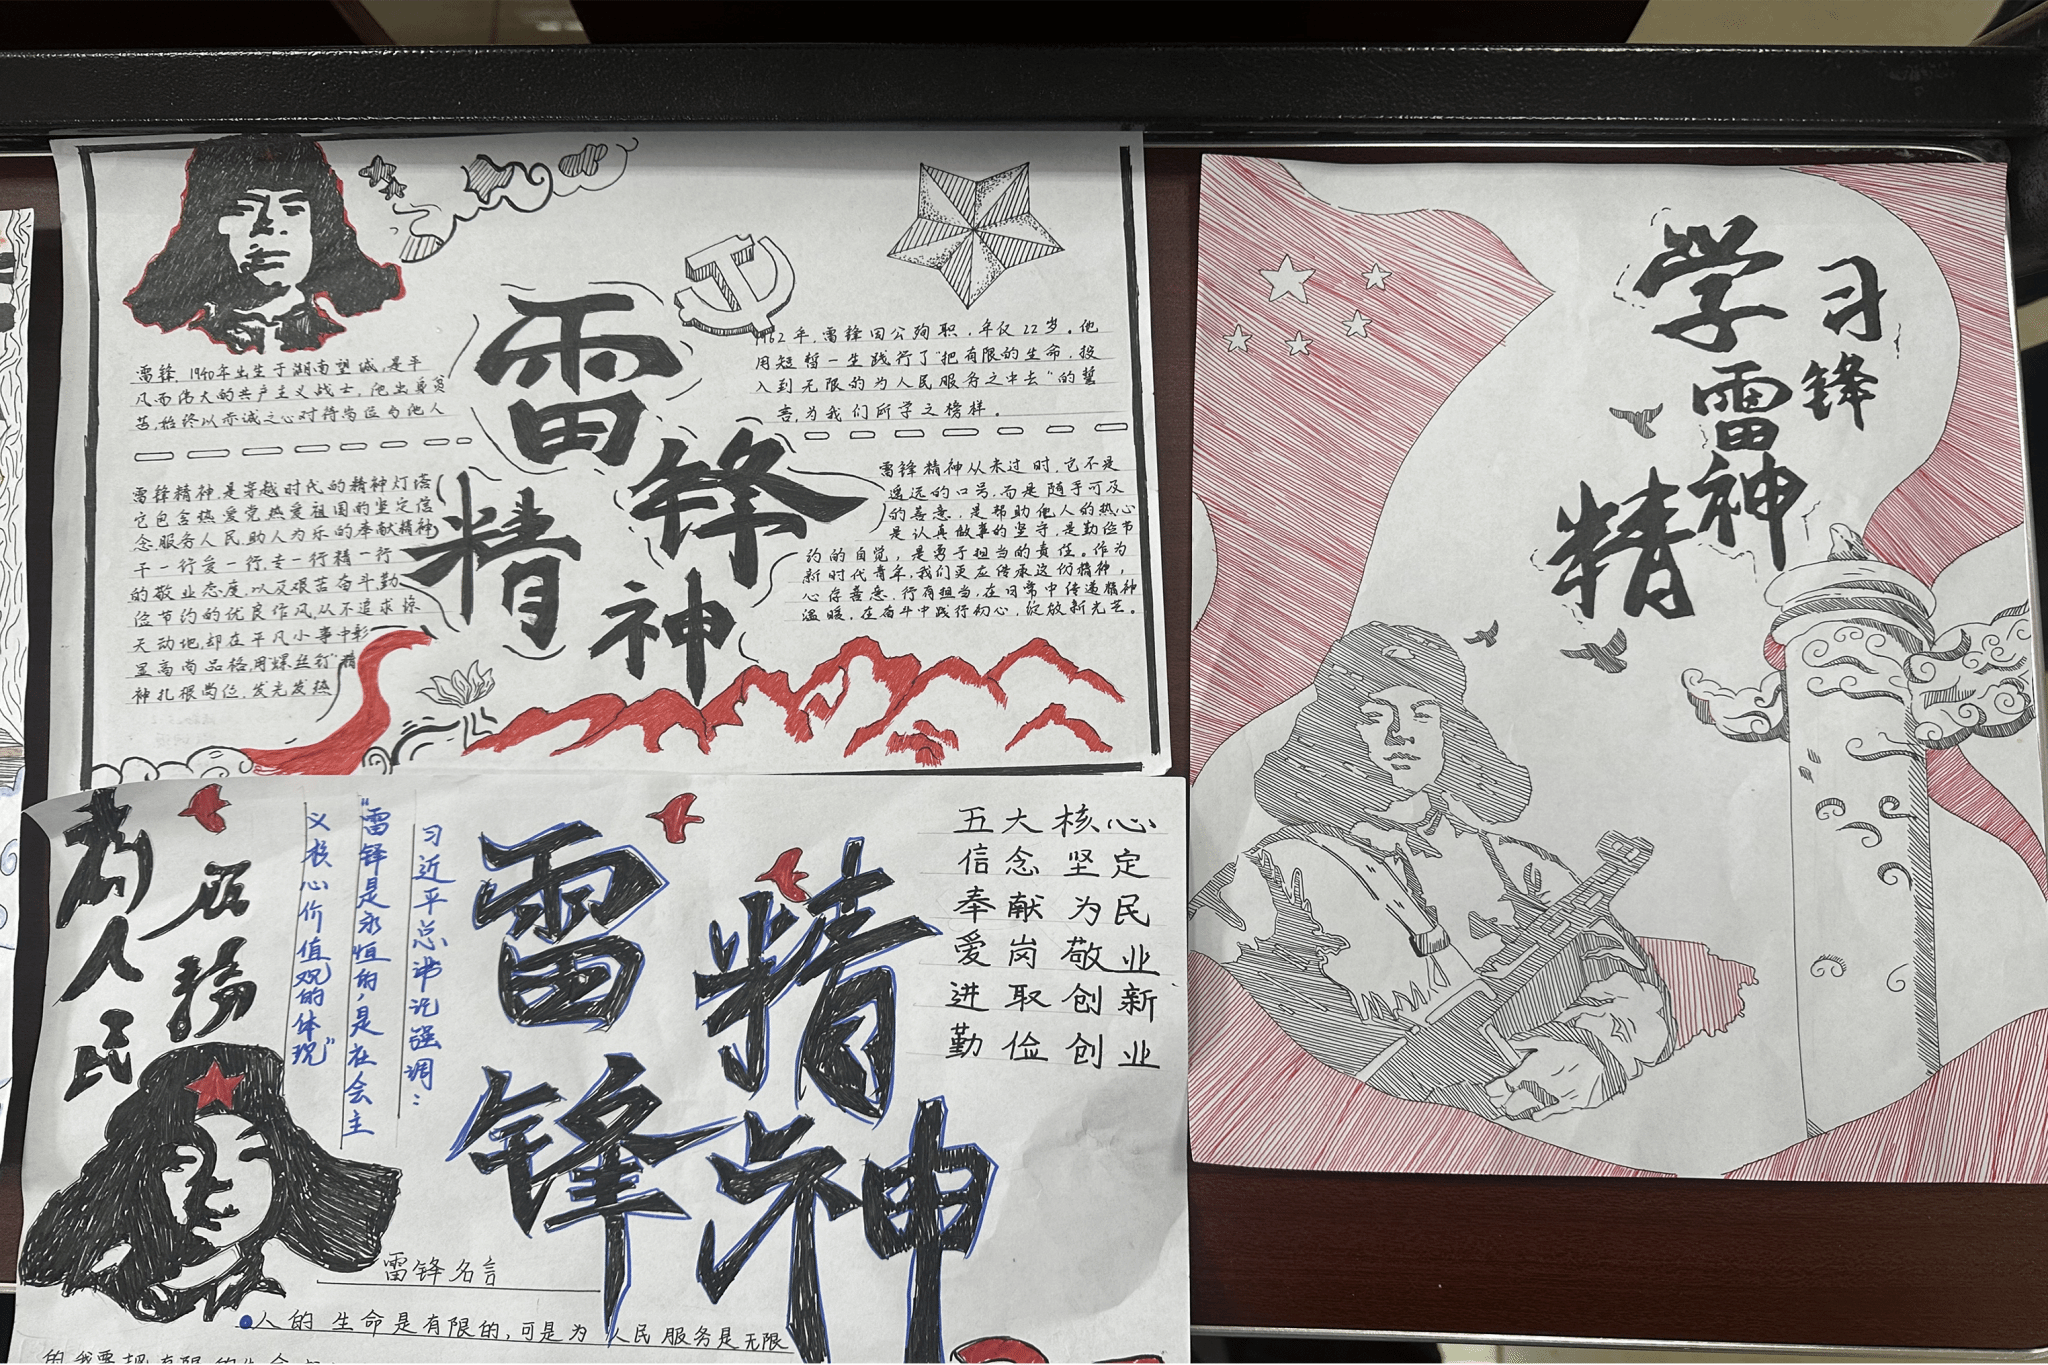 雷锋,1940年出生于湖南望城,是平
凡而伟大的共产主义战士,他出身贫
苦,始终以赤诚之心对待岗位与他人
雷锋精神,是穿越时代的精神灯塔
它包含热爱党热爱祖国的坚定信
念,服务人民,助人为乐的奉献精神
干一行爱一行,专一行精一行
的敬业态度,以及艰苦奋斗勤
俭节约的优良作风,从不追求惊
天动地,却在平凡小事中彰
显高尚品格用"螺丝钉"精
神扎根岗位,发光发热
雷锋
精神
1962年,雷锋因公殉职,年仅22岁。他
用短暂一生践行了"把有限的生命,投
入到无限的为人民服务之中去"的誓
言,为我们所学之榜样。
雷锋精神从未过时,它不是
遥远的口号,而是随手可及
的善意,是帮助他人的热心
是认真做事的坚守,是勤俭节
约的自觉,是勇于担当的责任。作为
新时代青年,我们更应传承这份精神,
心存善意,行有担当,在日常中传递精神
温暖,在奋斗中践行初心,绽放新光芒。
学习
雷锋
精神
为人民
服務
习近平总书记强调:
"雷锋是永恒的,是社会主
义核心价值观的体现"
雷锋
精神
五大核心
信念坚定
奉献为民
爱岗敬业
进取创新
勤俭创业
雷锋名言
人的生命是有限的,可是为人民服务是无限